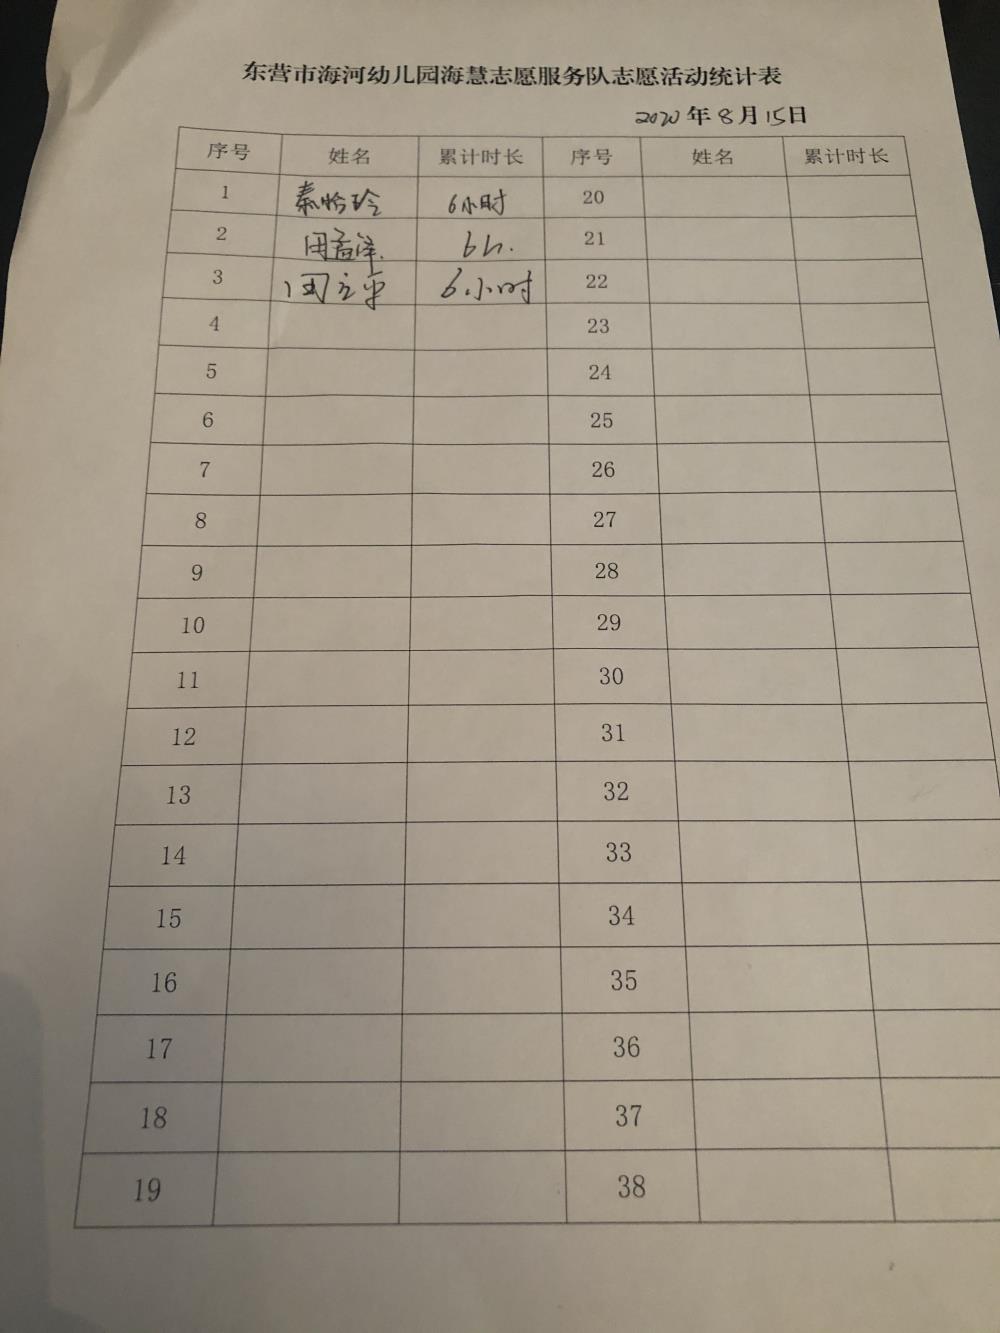 东营市海河幼儿园海慧志愿服务队志愿活动统计表
2020年8月15日
序号 姓名 累计时长 序号 姓名 累计时长
1 秦怡玲 6小时 20
2 周孟泽. 6h. 21
3 周立平 6小时 22
4 23
5 24
6 25
7 26
8 27
9 28
10 29
11 30
12 31
13 32
14 33
15 34
16 35
17 36
18 37
19 38